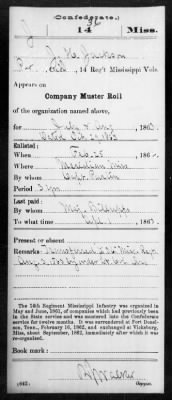 Confederate.
J 14 Miss.
J. H. Jackson
Pvt, Co. , 14 Reg't Mississippi Vols.
Appears on
Company Muster Roll
of the organization named above,
for July & Aug , 1863.
Dated Oct 24 1863
Enlisted:
When Feb 25 , 186
Where Meridian Miss
By whom Capt
Period 3 yrs
Last paid:
By whom Maj.
To what time , 1863.
Present or absent
Remarks: Transferred
Aug
The 14th Regiment Mississippi Infantry was organized in
May and June, 1861, of companies which had previously been
in the State service and was mustered into the Confederate
service for twelve months. It was surrendered at Fort Donel-
son, Tenn., February 16, 1862, and exchanged at Vicksburg,
Miss., about September, 1862, immediately after which it was
re-organized.
Book mark:
(642) Copyist.